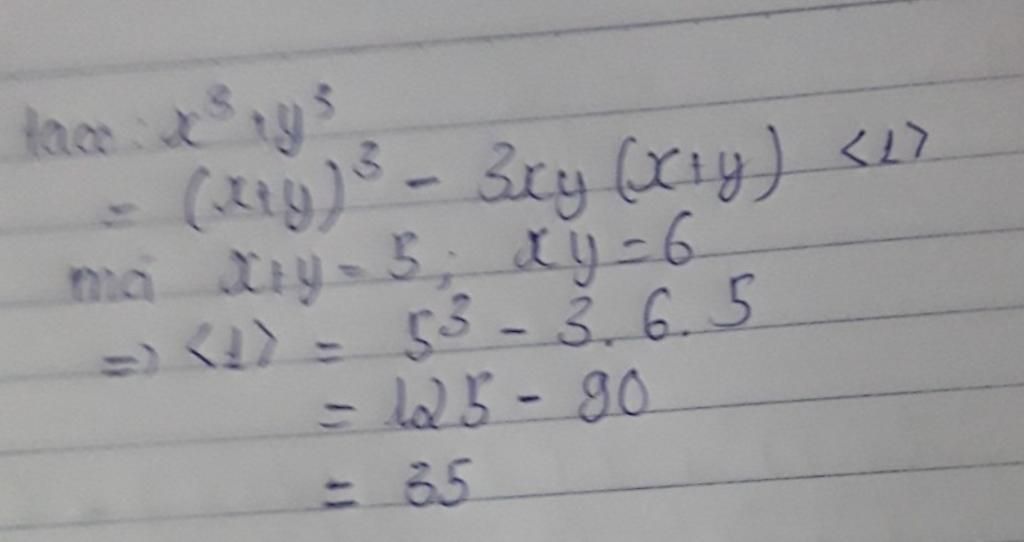 tacó: x³+y³
= (x+y)³ - 3xy(x+y) <1>
mà x+y=5; xy=6
=> <1> = 5³ - 3.6.5
= 125 - 90
= 35